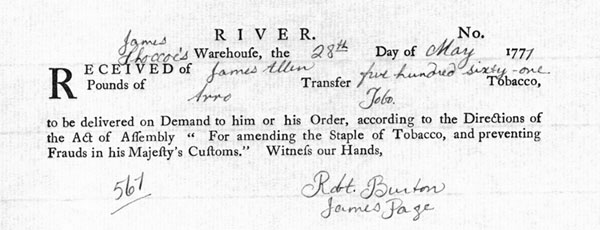 James RIVER. No.
Shoccoe's Warehouse, the 28th Day of May 1771
RECEIVED of James Allen five hundred sixty-one
Pounds of Arro Transfer Tobo. Tobacco,
to be delivered on Demand to him or his Order, according to the Directions of
the Act of Assembly " For amending the Staple of Tobacco, and preventing
Frauds in his Majesty's Customs." Witness our Hands,
561 Robt. Burton
James Page